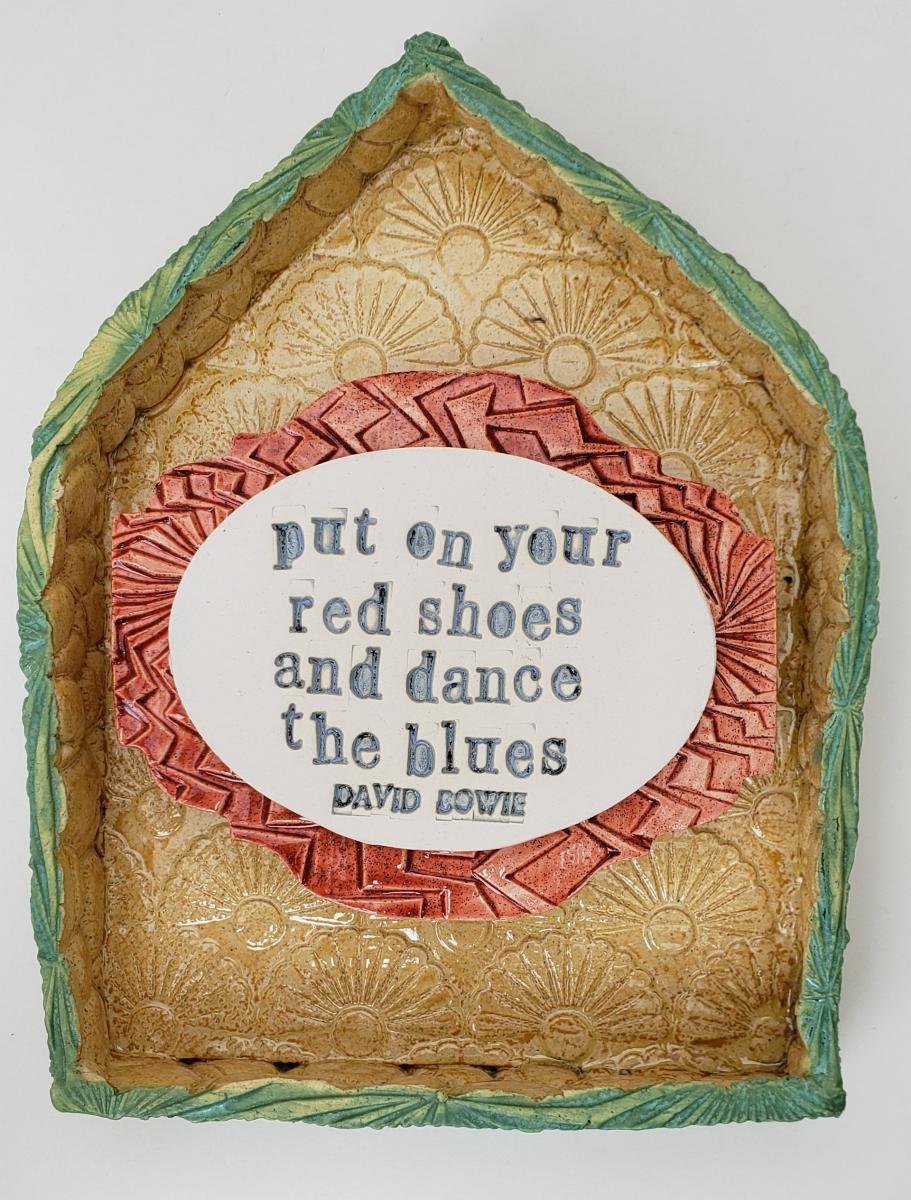 put on your
red shoes
and dance
the blues
DAVID BOWIE